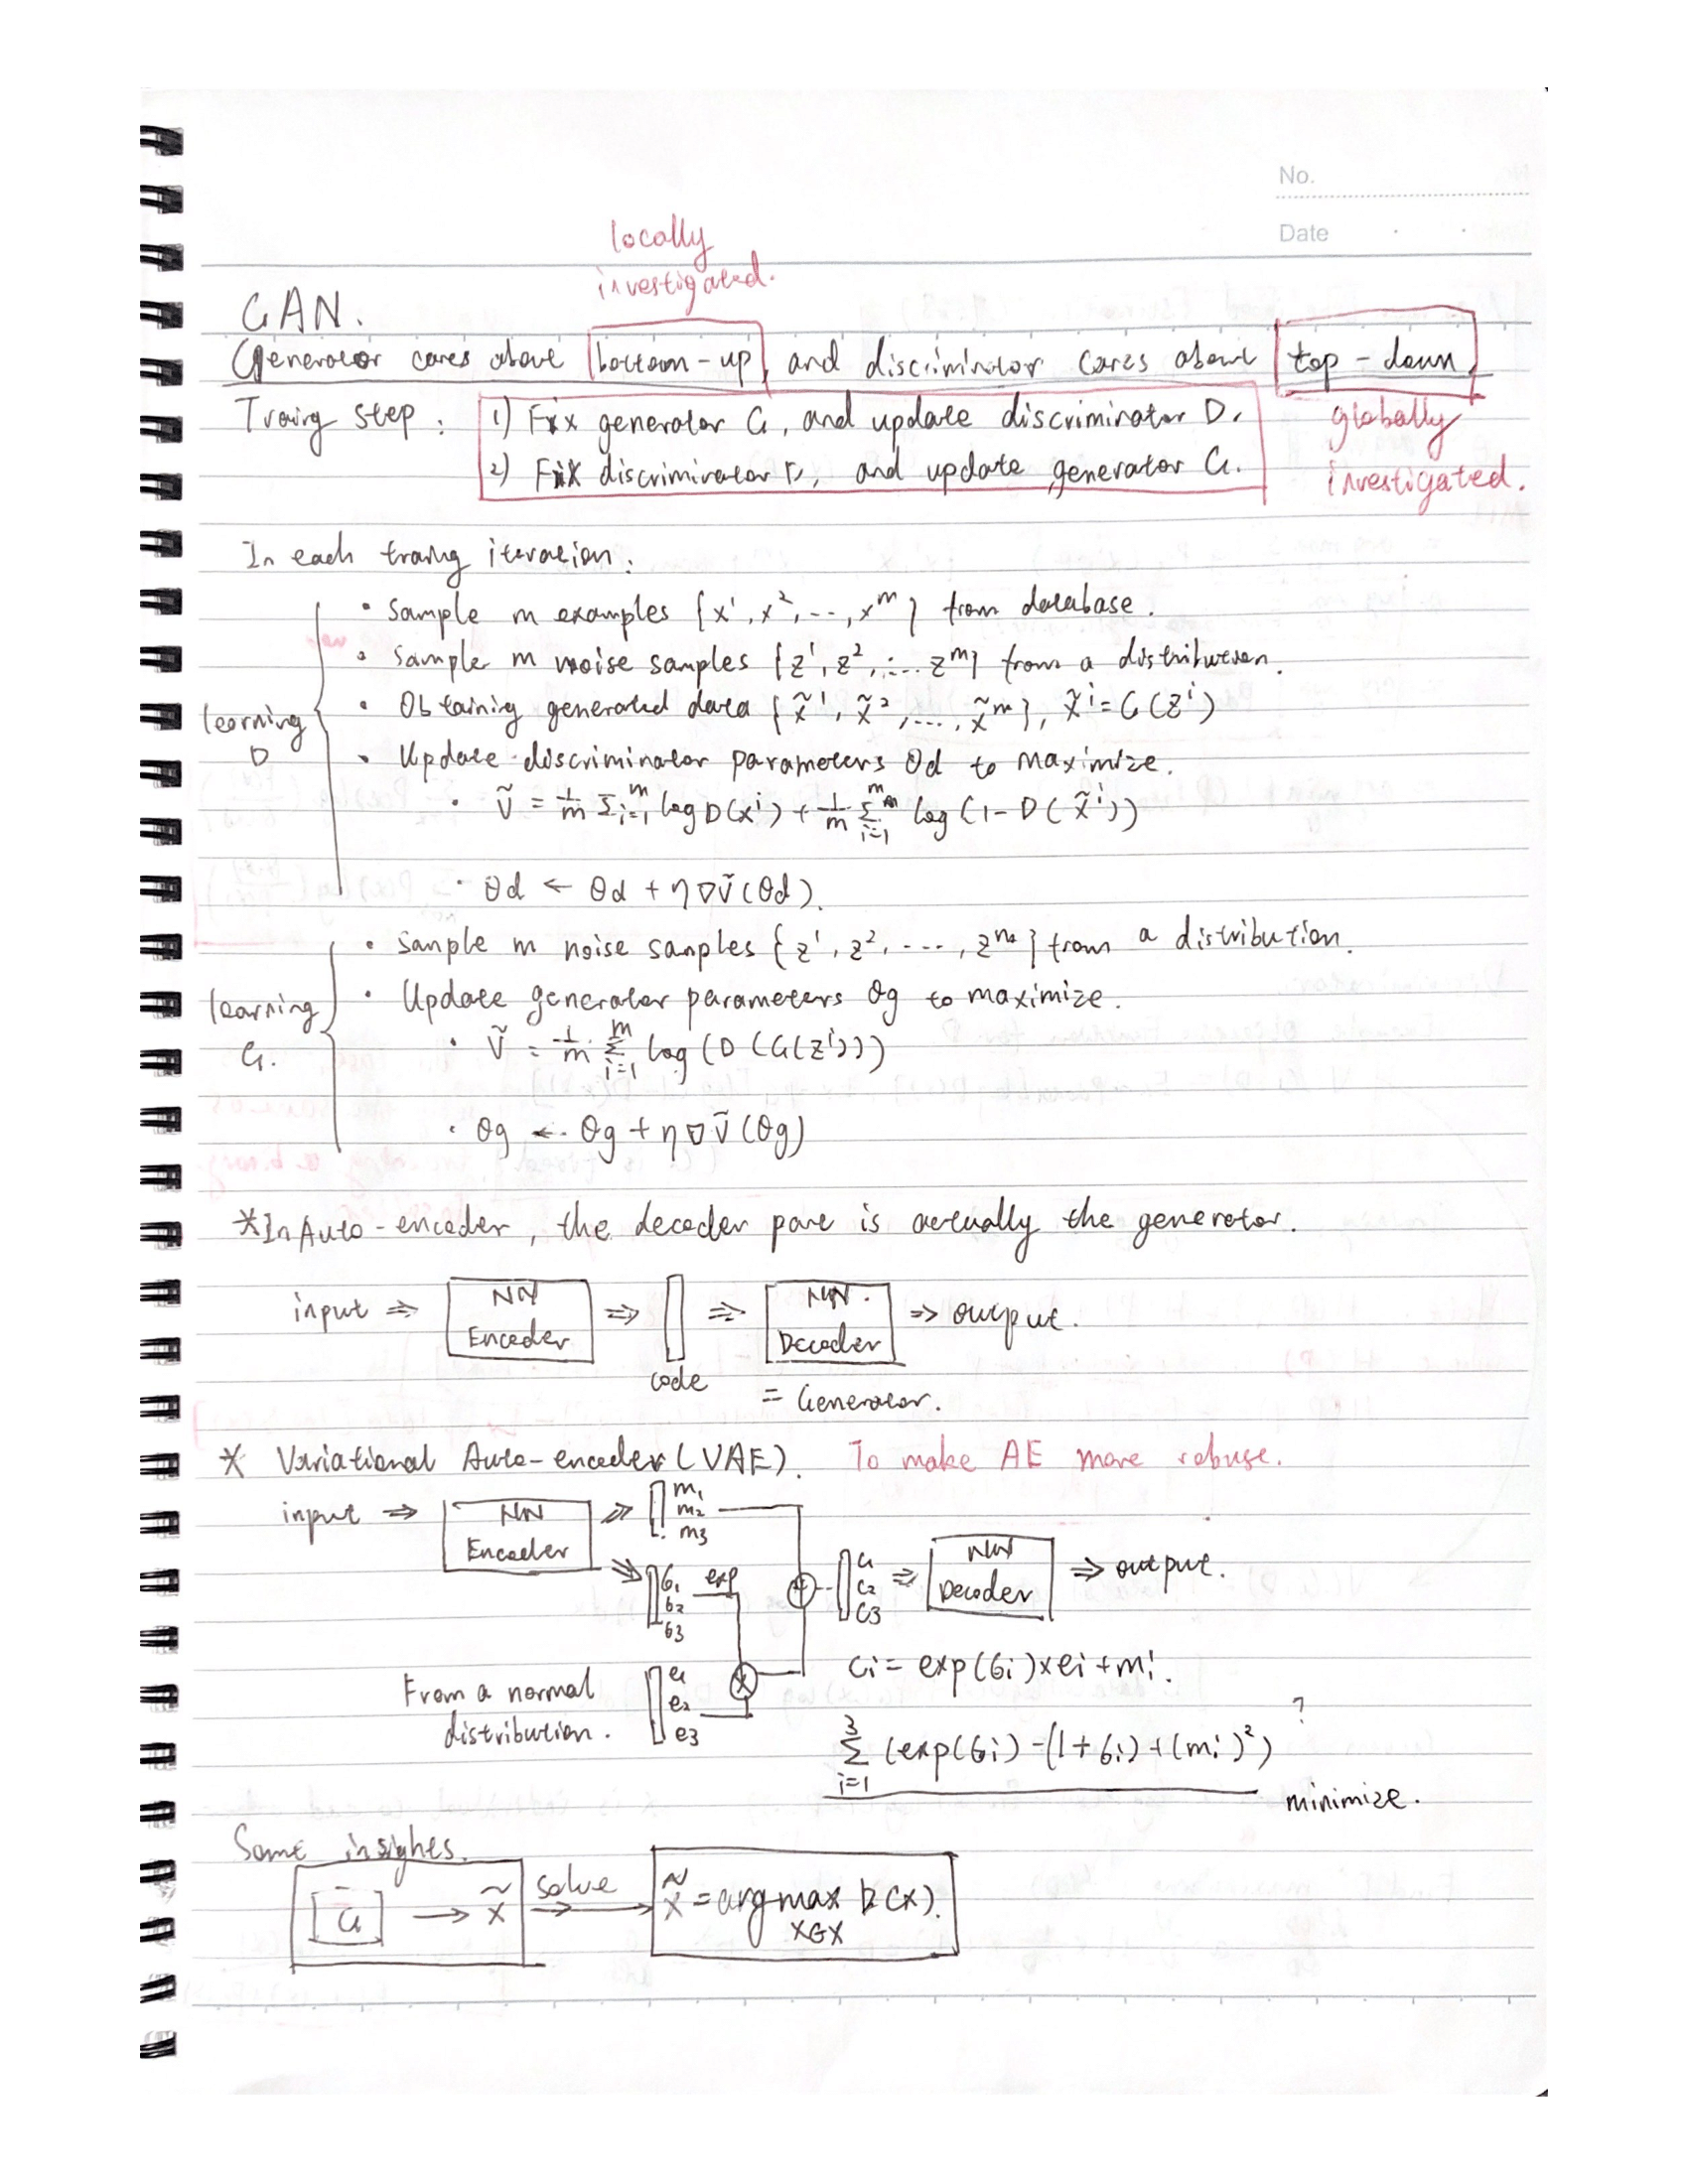 No.
Date
locally
investigated.
GAN.
Generator cares about bottom-up, and discriminator cares about top-down.
globally
investigated.
Traing step: 1) Fix generator G, and update discriminator D.
2) Fix discriminator D, and update generator G.
In each traing iteration:
learning D
• Sample m examples {x¹, x², ..., xᵐ} from database.
• Sample m noise samples {z¹, z², ... zᵐ} from a distribution.
• Obtaining generated data {x̃¹, x̃², ..., x̃ᵐ}, x̃ⁱ = G(zⁱ)
• Update discriminator parameters θd to maximize.
• Ṽ = 1/m Σᵢ₌₁ᵐ log D(xⁱ) + 1/m Σᵢ₌₁ᵐ log(1 - D(x̃ⁱ))
• θd ← θd + η∇Ṽ(θd).
learning G.
• Sample m noise samples {z¹, z², ..., zᵐ} from a distribution.
• Update generator parameters θg to maximize.
• Ṽ = 1/m Σᵢ₌₁ᵐ log(D(G(zⁱ)))
• θg ← θg + η∇Ṽ(θg)
*In Auto-encoder, the decoder part is actually the generator.
input ⇒ NN Encoder ⇒ code ⇒ NN. Decoder ⇒ output.
= Generator.
* Variational Auto-encoder (VAE). To make AE more robust.
input ⇒ NN Encoder ⇒ m₁ m₂ m₃
σ₁ σ₂ σ₃ exp
+ c₁ c₂ c₃ ⇒ NN Decoder ⇒ output.
From a normal distribution. e₁ e₂ e₃ ×
cᵢ = exp(σᵢ)×eᵢ+mᵢ.
Σᵢ₌₁³ (exp(σᵢ) - (1+σᵢ) + (mᵢ)²) ?
minimize.
Some insights.
[G] → x̃ solve → x̃ = arg max D(x). x∈X